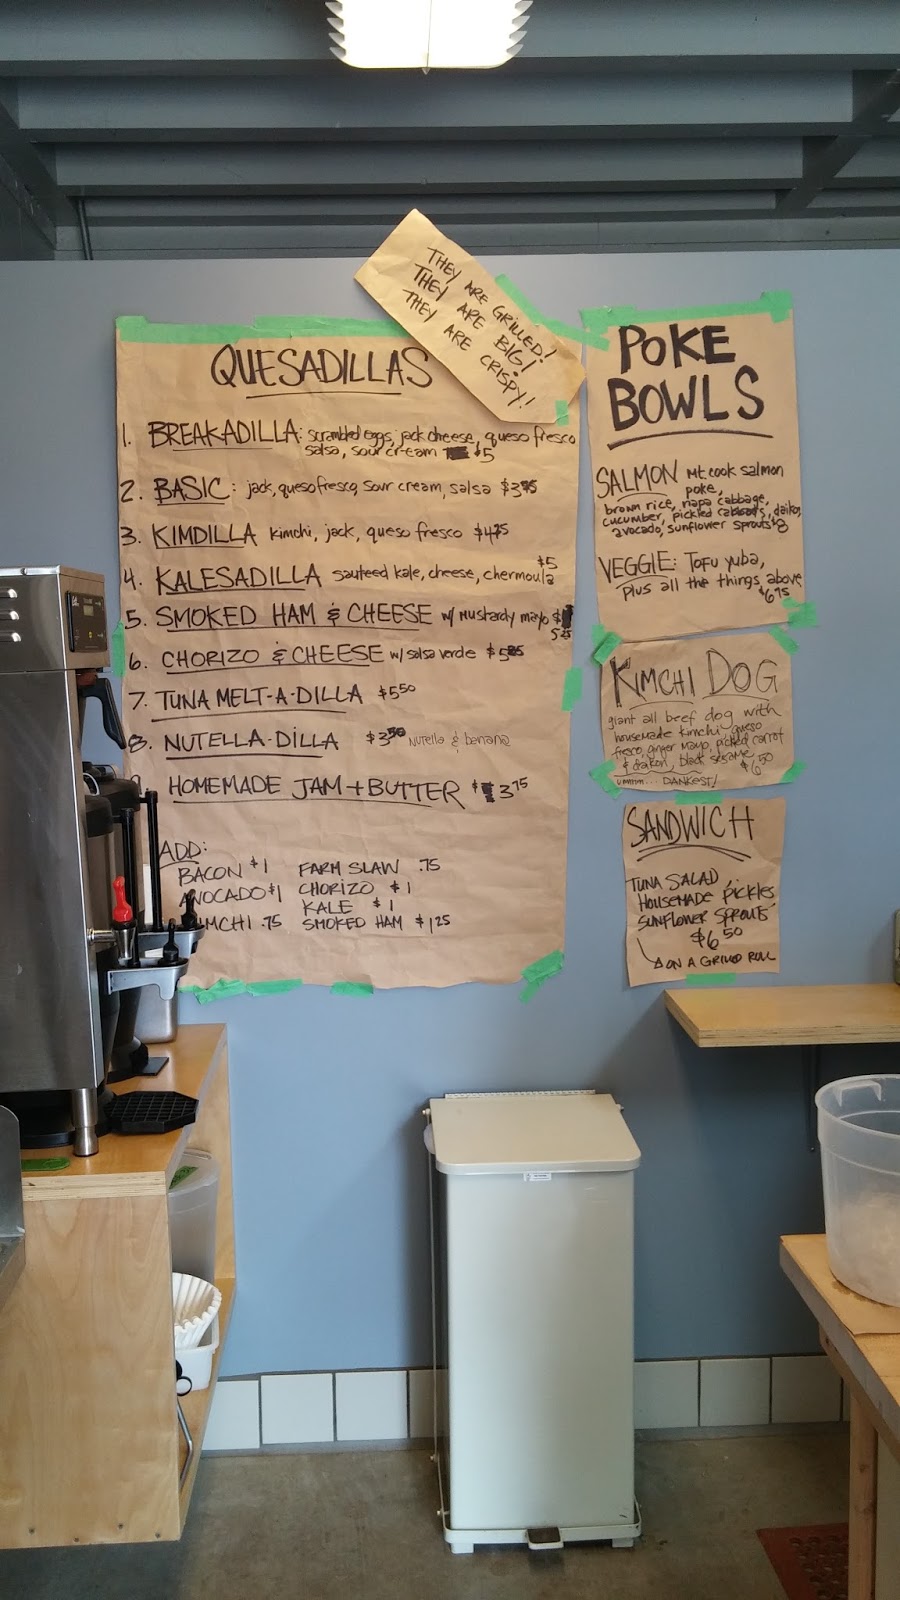 THEY ARE GRILLED!
THEY ARE BIG!
THEY ARE CRISPY!
QUESADILLAS
1. BREAKADILLA: scrambled eggs, jack cheese, queso fresco
salsa, sour cream $5
2. BASIC: jack, queso fresco, sour cream, salsa
3. KIMDILLA kimchi, jack, queso fresco $4.25
4. KALESADILLA sauteed kale, cheese, chermoula $5
5. SMOKED HAM & CHEESE w/ mustardy mayo $
5.25
6. CHORIZO & CHEESE w/ salsa verde
7. TUNA MELT-A-DILLA $5.50
8. NUTELLA-DILLA $3.50 Nutella & banana
HOMEMADE JAM + BUTTER $3.75
ADD:
BACON $1 FARM SLAW .75
AVOCADO $1 CHORIZO $1
KALE $1
MCHI .75 SMOKED HAM $1.25
POKE
BOWLS
SALMON Mt. cook salmon
poke,
brown rice, napa cabbage,
cucumber, pickled cabbage, daikon,
avocado, sunflower sprouts $8
VEGGIE: TOFU yuba,
plus all the things above
$6.75
KIMCHI DOG
giant all beef dog with
housemade kimchi, queso
fresco, ginger mayo, pickled carrot
& daikon, black sesame $6.50
ummm... DANKEST!
SANDWICH
TUNA SALAD,
HOUSEMADE pickles,
SUNFLOWER SPROUTS
$6.50
ON A GRILLED ROLL